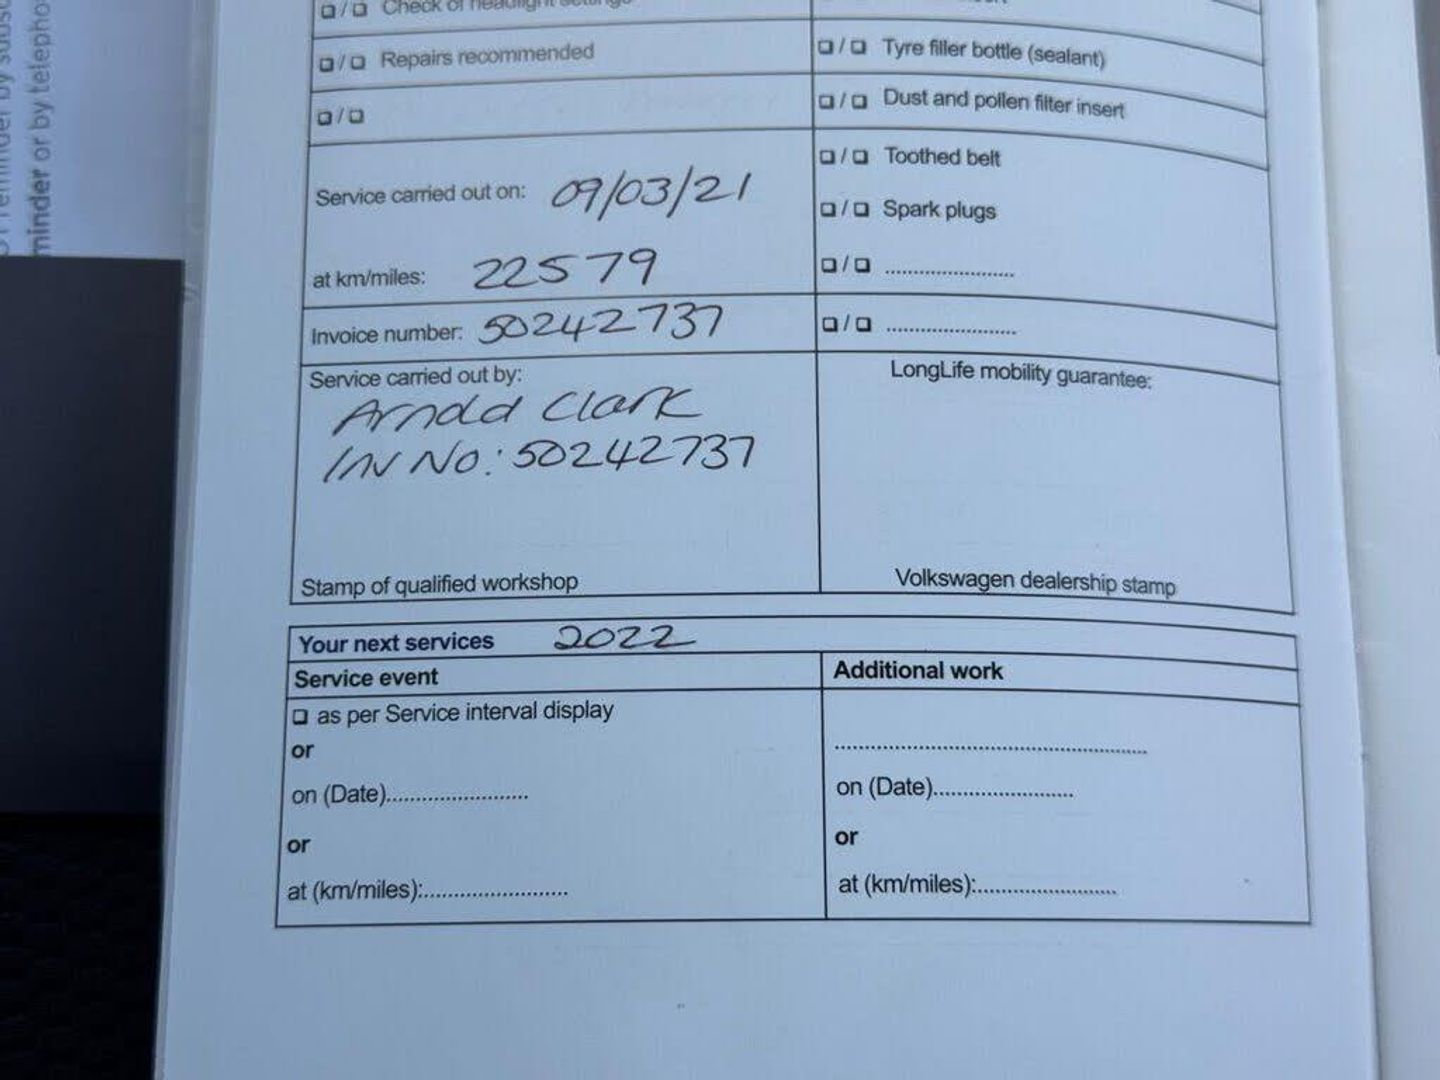 ❏/❏ Check of headlight settings
❏/❏ Repairs recommended
❏/❏
Service carried out on: 09/03/21
at km/miles: 22579
Invoice number: 50242737
Service carried out by:
Arnold Clark
INV No: 50242737
Stamp of qualified workshop
❏/❏ Tyre filler bottle (sealant)
❏/❏ Dust and pollen filter insert
❏/❏ Toothed belt
❏/❏ Spark plugs
❏/❏ ........................
❏/❏ ........................
LongLife mobility guarantee:
Volkswagen dealership stamp
Your next services 2022
Service event
❏ as per Service interval display
or
on (Date)........................
or
at (km/miles):........................
Additional work
......................................................
on (Date)........................
or
at (km/miles):........................
minder or by telepho